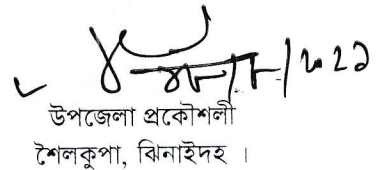 উপজেলা প্রকৌশলী
শৈলকুপা, ঝিনাইদহ ।